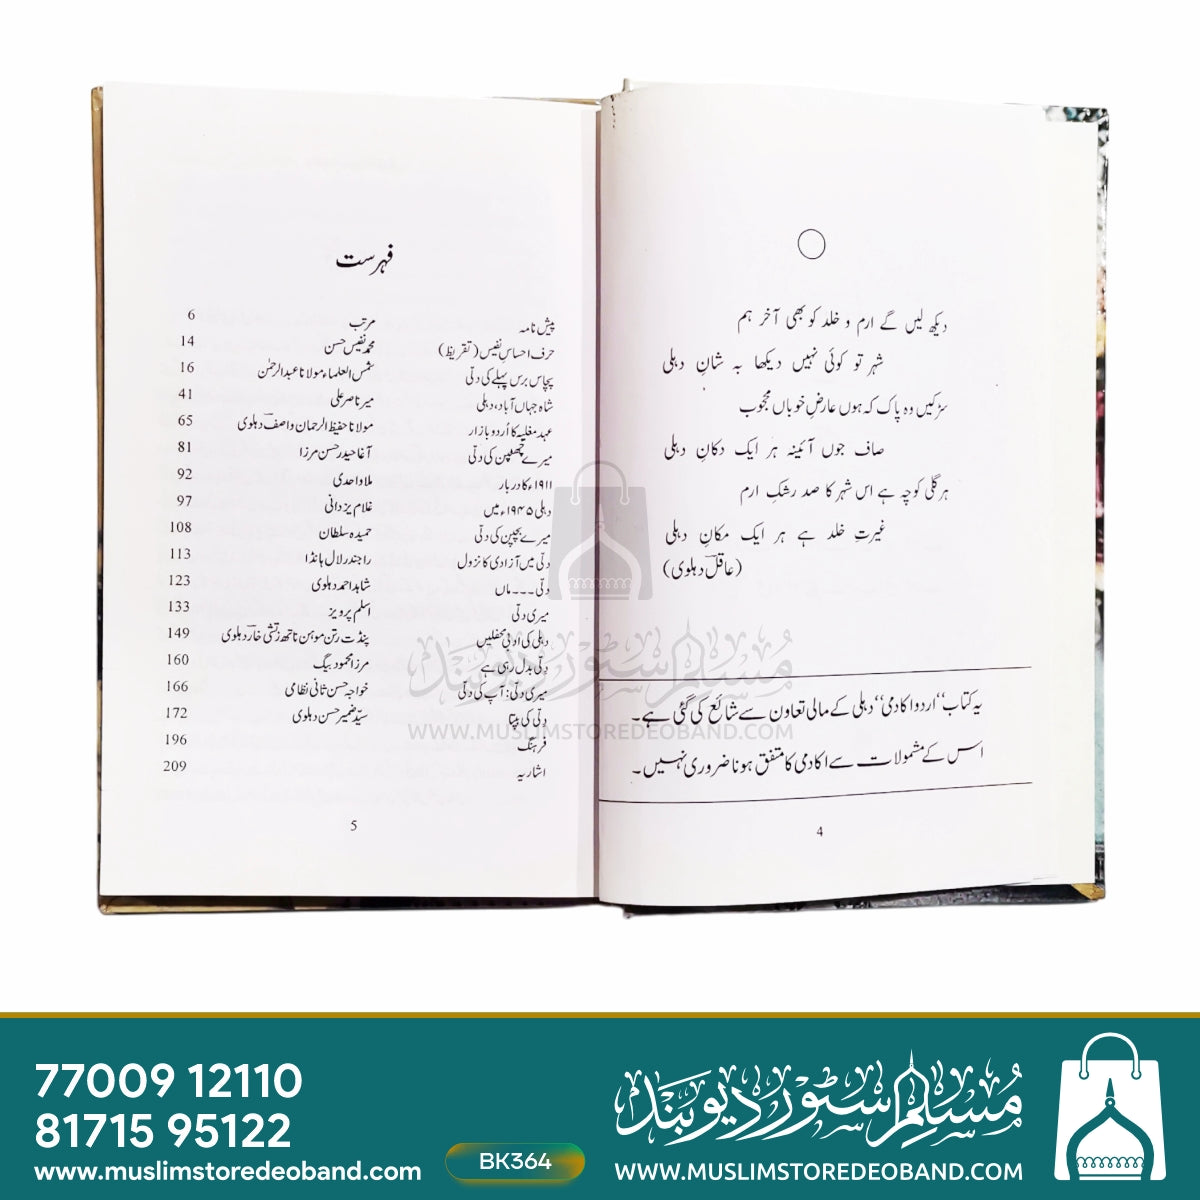 دیکھ لیں گے ارم و خلد کو بھی آخر ہم
شہر تو کوئی نہیں دیکھا بہ شانِ دہلی
سڑکیں وہ پاک کہ ہوں عارضِ خوباں محجوب
صاف جوں آئینہ ہر ایک دکانِ دہلی
ہر گلی کوچہ ہے اس شہر کا صد رشکِ ارم
غیرتِ خلد ہے ہر ایک مکانِ دہلی
(عاقلؔ دہلوی)
یہ کتاب ”اردو اکادمی“ دہلی کے مالی تعاون سے شائع کی گئی ہے۔
اس کے مشمولات سے اکادمی کا متفق ہونا ضروری نہیں۔
4
فہرست
پیش نامہ مرتب 6
حرف احساسِ نفیس (تقریظ) محمد نفیس حسن 14
پچاس برس پہلے کی دلّی شمس العلماء مولانا عبدالرحمٰن 16
شاہ جہاں آباد، دہلی میر ناصر علی 41
عہد مغلیہ کا اُردو بازار مولانا حفیظ الرحمان واصفؔ دہلوی 65
میرے چھٹپن کی دلّی آغا حیدر حسن مرزا 81
۱۹۱۱ء کا دربار ملا واحدی 92
دہلی ۱۹۴۵ء میں غلام یزدانی 97
میرے بچپن کی دلّی حمیدہ سلطان 108
دلّی میں آزادی کا نزول راجندر لال ہانڈا 113
دلّی۔۔۔ماں شاہد احمد دہلوی 123
میری دلّی اسلم پرویز 133
دہلی کی ادبی محفلیں پنڈت رتن موہن ناتھ زتشی خارؔ دہلوی 149
دلّی بدل رہی ہے مرزا محمود بیگ 160
میری دلّی: آپ کی دلّی خواجہ حسن ثانی نظامی 166
دلّی کی بپتا سیّد ضمیر حسن دہلوی 172
فرہنگ 196
اشاریہ 209
5
مسلم سٹور دیوبند
WWW.MUSLIMSTOREDEOBAND.COM
77009 12110
81715 95122
www.muslimstoredeoband.com
BK364
مسلم سٹور دیوبند
WWW.MUSLIMSTOREDEOBAND.COM